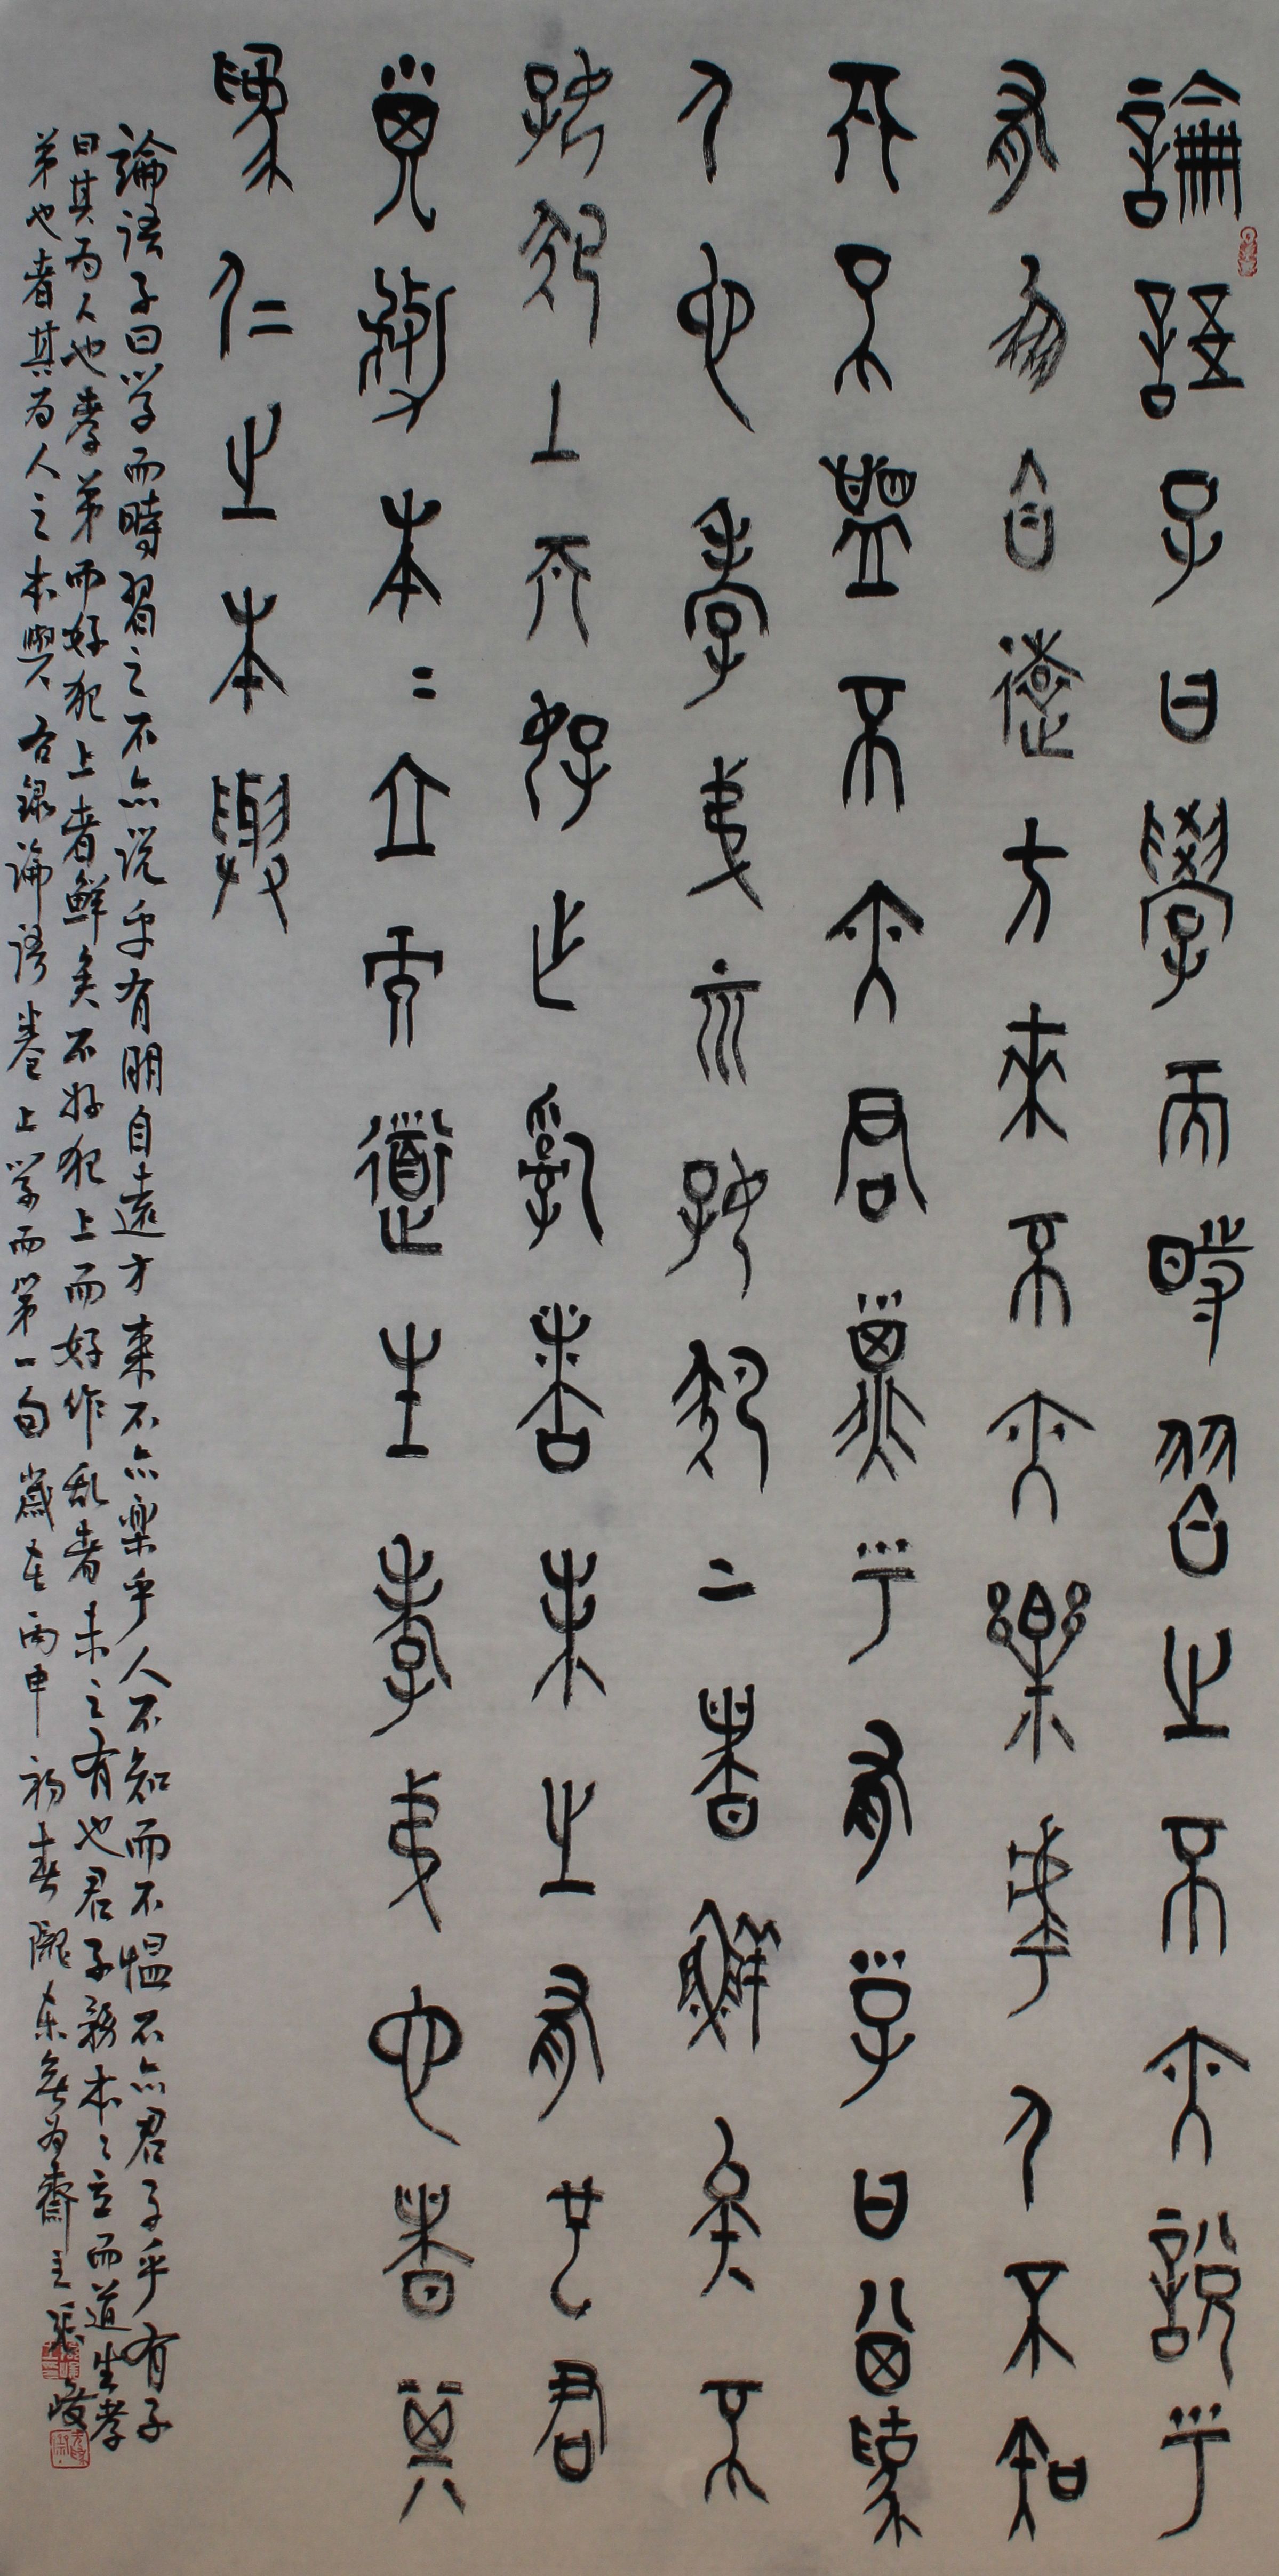 論語子曰學而時習之不亦說乎
有朋自遠方來不亦樂乎人不知
而不慍不亦君子乎有子曰其為
人也孝弟而好犯上者鮮矣不
好犯上而好作亂者未之有也君
子務本〻立而道生孝弟也者其
為仁之本與
論語子曰学而時習之不亦説乎有朋自遠方来不亦楽乎人不知而不愠不亦君子乎有子
曰其为人也孝弟而好犯上者鮮矣不好犯上而好作乱者未之有也君子務本〻立而道生孝
弟也者其为人之本與右録論語卷上学而第一句歲在丙申初春隴東無为齋主張峻